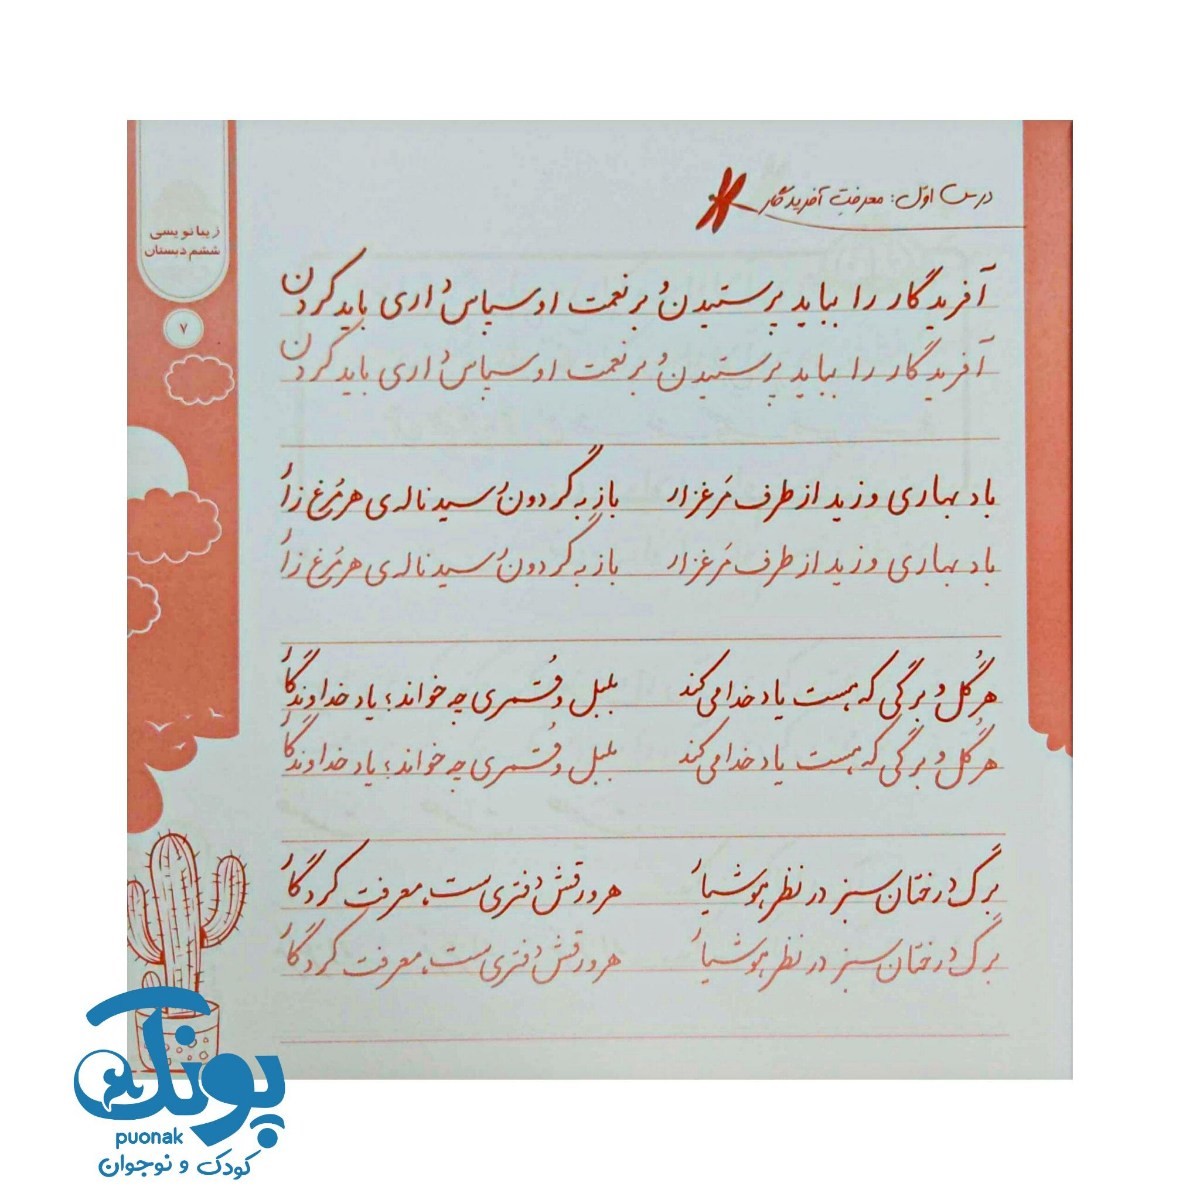 درس اوّل: معرفتِ آفریدگار
زیبا نویسی
ششم دبستان
۷
آفریدگار را بباید پرستیدن و بر نعمت او سپاس‌داری باید کردن
آفریدگار را بباید پرستیدن و بر نعمت او سپاس‌داری باید کردن
باد بهاری وزید از طرف مَرغزار باز به گردون رسید ناله‌ی هر مُرغ زار
باد بهاری وزید از طرف مَرغزار باز به گردون رسید ناله‌ی هر مُرغ زار
هر گُل و برگی که هست یاد خدا می‌کند بلبل و قُمری چه خواند؛ یاد خداوندگار
هر گُل و برگی که هست یاد خدا می‌کند بلبل و قُمری چه خواند؛ یاد خداوندگار
برگ درختان سبز در نظر هوشیار هر ورقش دفتری‌ست، معرفت کردگار
برگ درختان سبز در نظر هوشیار هر ورقش دفتری‌ست، معرفت کردگار
پونک
puonak
کودک و نوجوان